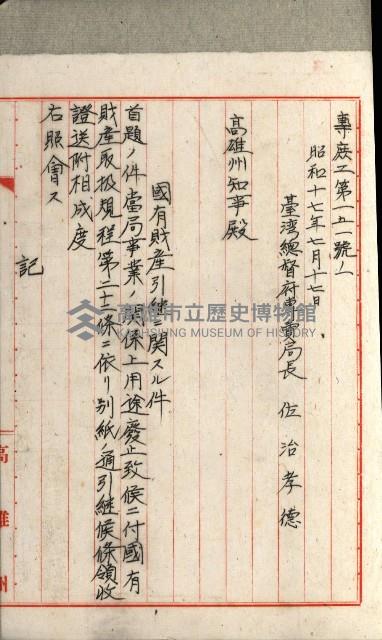 專庶工第一五一號ノ一
昭和十七年七月十七日
臺灣總督府專賣局長 佐治孝德
高雄州知事殿
國有財產引繼ニ關スル件
首題ノ件當局事業ノ關係上用途廢止致候ニ付國有
財產取扱規程第二十二條ニ依リ別紙ノ通引継候條領收
證送附相成度
右照會ス
記
高雄州
高雄市立歷史博物館
KAOHSIUNG MUSEUM OF HISTORY